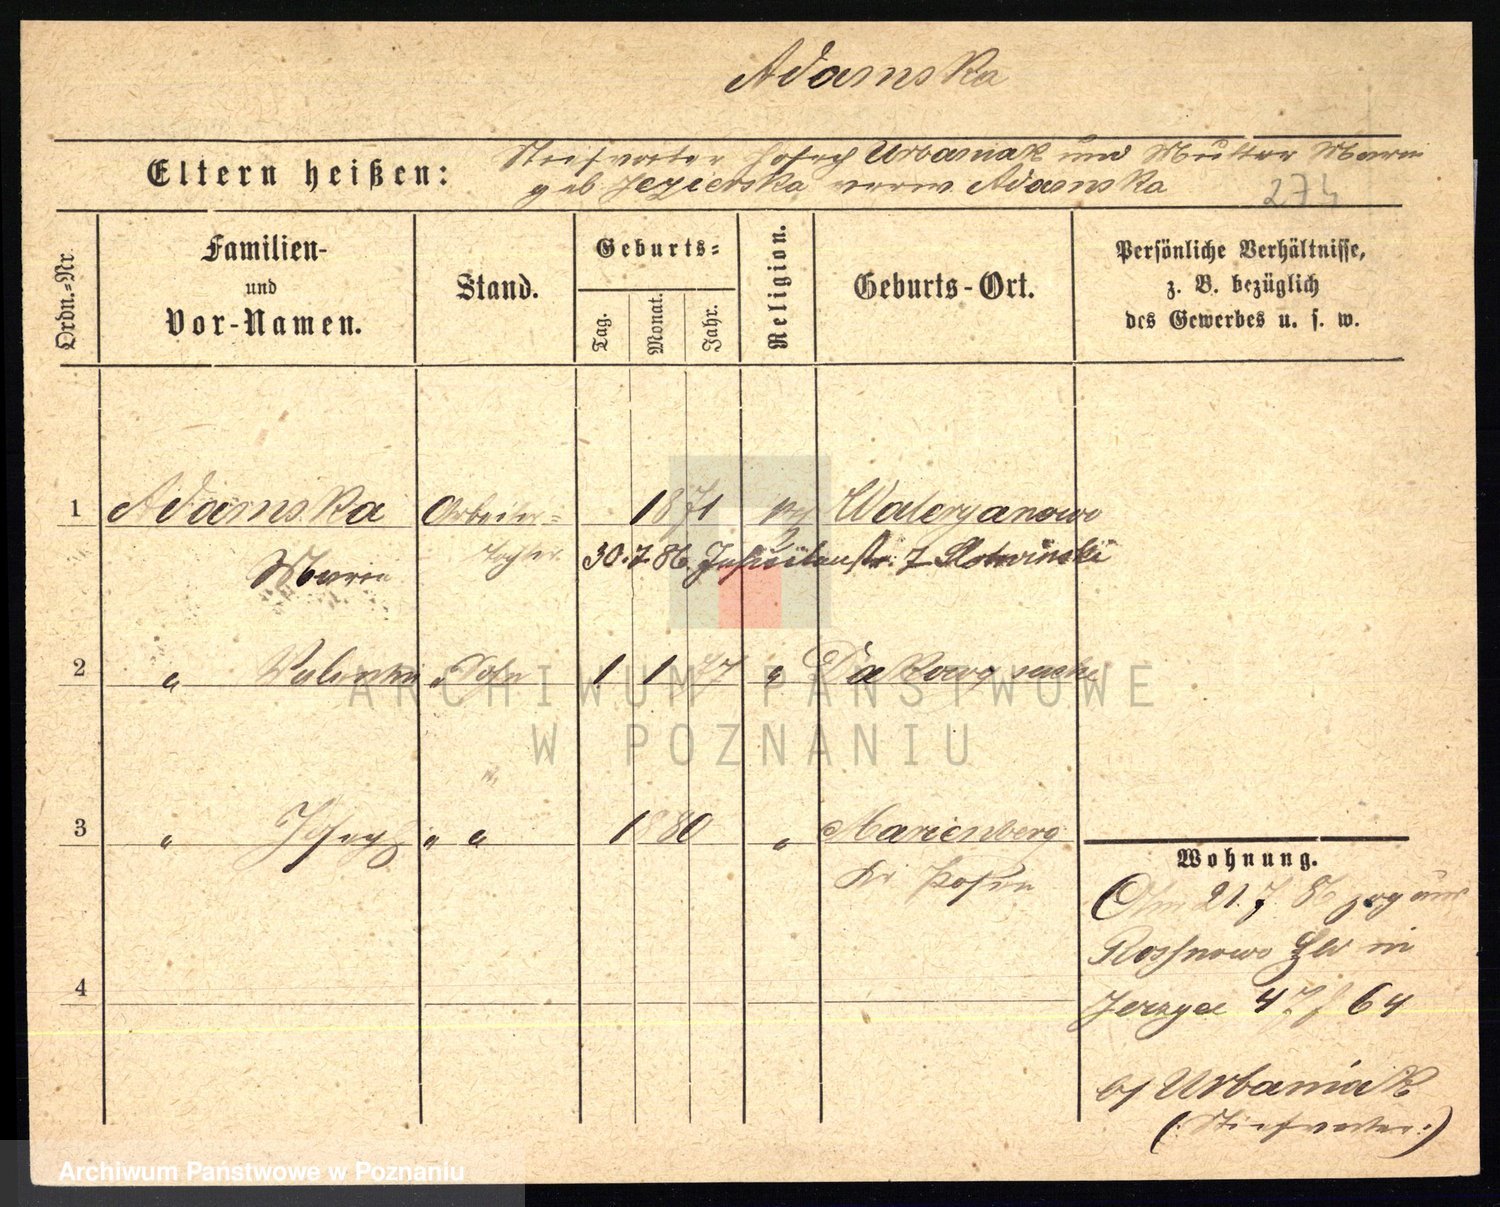 Adamska
Eltern heißen: Stiefvater Joseph Urbaniak und Mutter Marie
geb Jezierska verw. Adamska
274
Ordn.-Nr.
Familien-
und
Vor-Namen.
Stand.
Geburts=
Tag.
Monat.
Jahr.
Religion.
Geburts-Ort.
Persönliche Verhältnisse,
z. B. bezüglich
des Gewerbes u. s. w.
1 Adamska Arbeiter= 1871 Waleryanowo
Marie tochter 30.7.86. Jesuitenstr. 7 Slotwinski
2 " Sohn 1 1 77 "
3 " Joseph " " 1880 " Marienberg
Kr Posen
4
Wohnung.
Am 21.7 86 zog aus
Rossnowo in
Jerzyce 47 64
bei Urbaniak
(: Stiefvater :)
ARCHIWUM PAŃSTWOWE
W POZNANIU
Archiwum Państwowe w Poznaniu